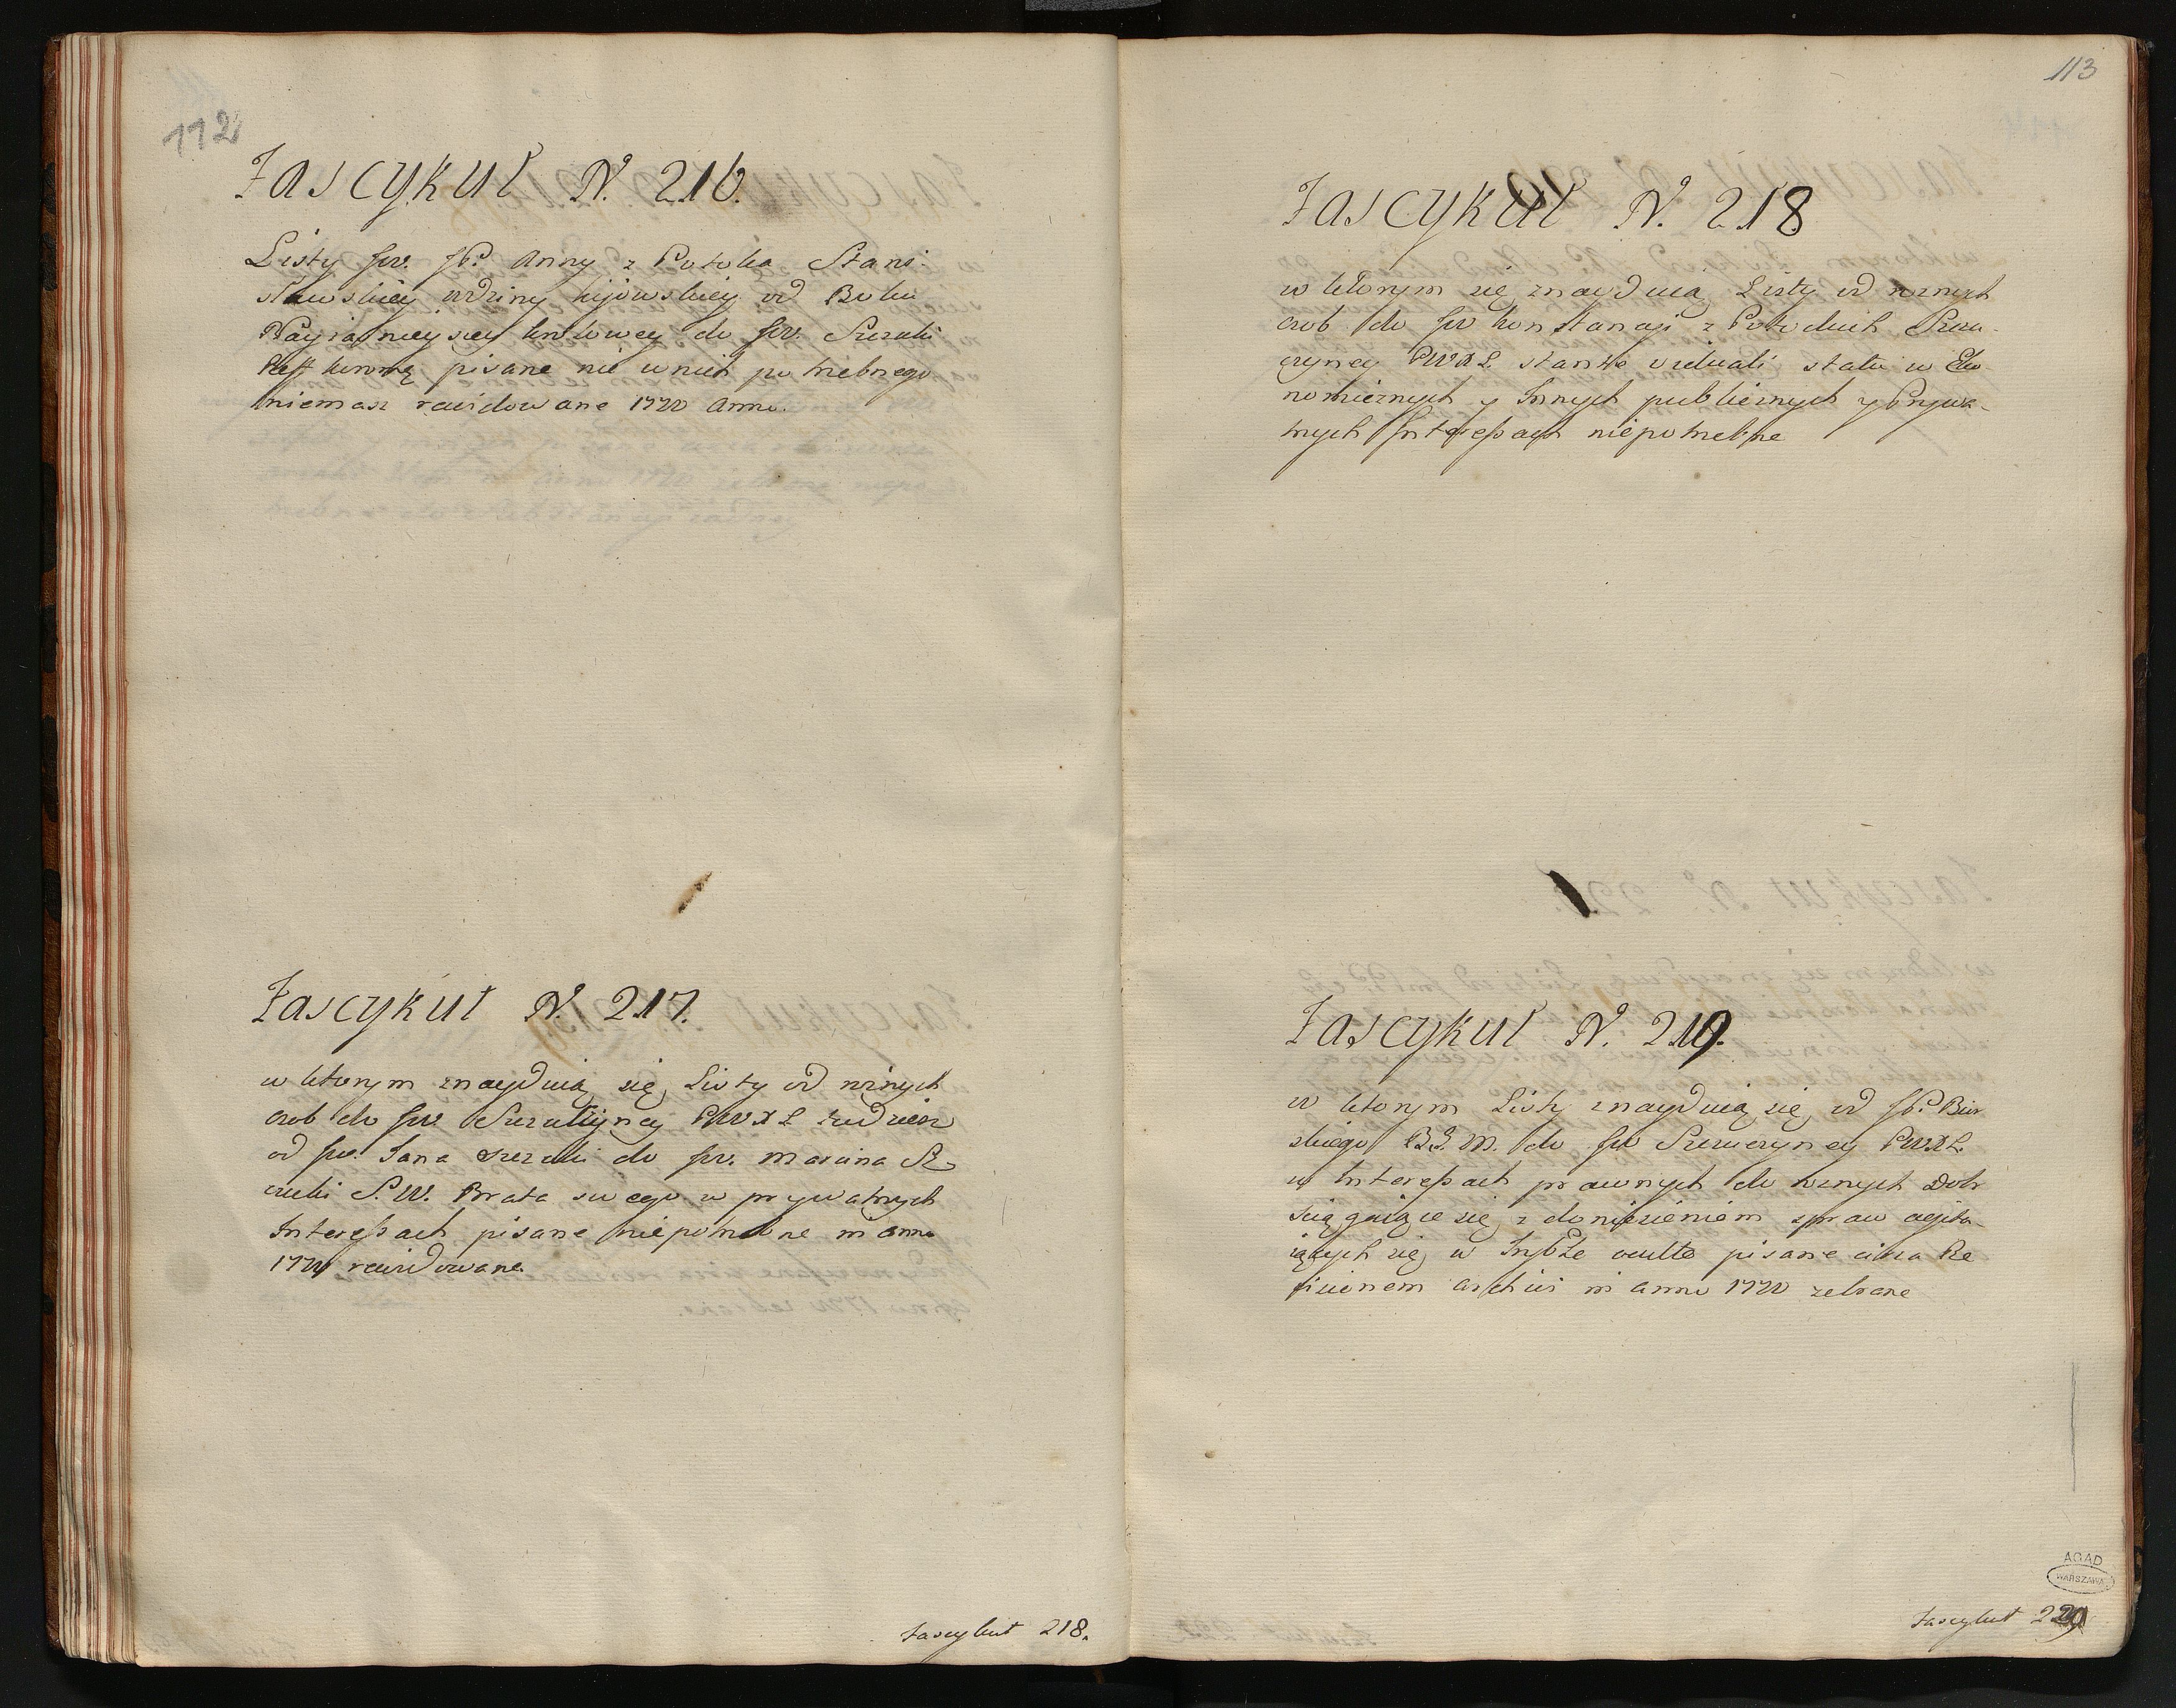 112
Fascykuł N. 216.
Listy JW. JP. Anny z Potoka Stani-
sławskiey kijowskiey od Boku
Nayiasnieyszey krolowey do JW. Szczuki
pisane nic w nich potrzebnego
niemasz rewidowane 1720 Anno.
Fascykuł N. 217.
w ktorym znayduią się Listy od roznych
osob do JW. PWXL tudziesz
od JW. Jana Szczuki do JW. Marcina Sz
czuki S. W. Brata swego w prywatnych
Interessach pisane niepotrzebne in anno
1720 rewidowane.
Fascykuł 218.
113
Fascykuł N. 218
w ktorym się znayduią Listy od roznych
osob do JW Konstancyi z Potockich Szczu-
czyney PWXL statu w Eko
nomicznych y Innych publicznych y Prywa-
tnych Interessach niepotrzebne
Fascykuł N. 219.
w ktorym Listy znayduią się od JP.
skiego do JW Szczuczyney PWXL
w Interessach prawnych do roznych Dobr
sciągaiące się z doniesieniem spraw agitu-
iących się w pisane circa Re
visionem Archivi in anno 1720 zebrane
AGAD
WARSZAWA
Fascykuł